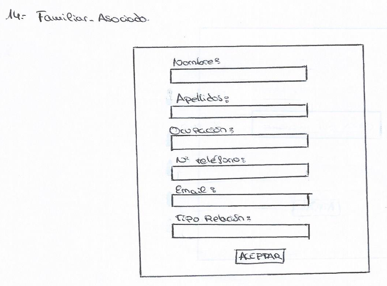 14.- Familiar-Asociado.
Nombre:
Apellidos:
Ocupación:
Nº teléfono:
Email:
Tipo Relación:
ACEPTAR